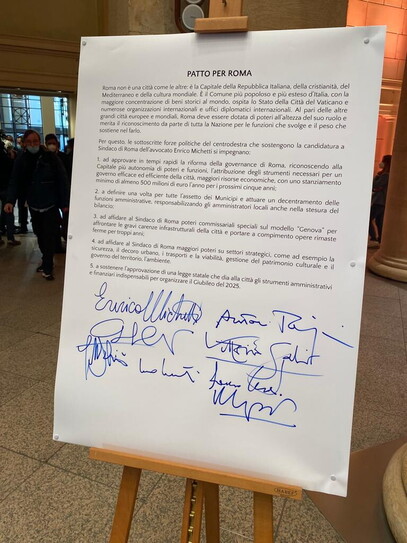 PATTO PER ROMA
Roma non è una città come le altre: è la Capitale della Repubblica Italiana, della cristianità, del
Mediterraneo e della cultura mondiale. È il Comune più popoloso e più esteso d'Italia, con la
maggiore concentrazione di beni storici al mondo, ospita lo Stato della Città del Vaticano e
numerose organizzazioni internazionali e uffici diplomatici internazionali. Al pari delle altre
grandi città europee e mondiali, Roma deve essere dotata di poteri all'altezza del suo ruolo e
merita il riconoscimento da parte di tutta la Nazione per le funzioni che svolge e il peso che
sostiene nel farlo.
Per questo, le sottoscritte forze politiche del centrodestra che sostengono la candidatura a
Sindaco di Roma dell'avvocato Enrico Michetti si impegnano:
1. ad approvare in tempi rapidi la riforma della governance di Roma, riconoscendo alla
Capitale più autonomia di poteri e funzioni, l'attribuzione degli strumenti necessari per un
governo efficace ed efficiente della città, maggiori risorse economiche, con uno stanziamento
minimo di almeno 500 milioni di euro l'anno per i prossimi cinque anni;
2. a definire una volta per tutte l'assetto dei Municipi e attuare un decentramento delle
funzioni amministrative, responsabilizzando gli amministratori locali anche nella stesura del
bilancio;
3. ad affidare al Sindaco di Roma poteri commissariali speciali sul modello "Genova" per
affrontare le gravi carenze infrastrutturali della città e portare a compimento opere rimaste
ferme per troppi anni;
4. ad affidare al Sindaco di Roma maggiori poteri su settori strategici, come ad esempio la
sicurezza, il decoro urbano, i trasporti e la viabilità, gestione del patrimonio culturale e il
governo del territorio, l'ambiente.
5. a sostenere l'approvazione di una legge statale che dia alla città gli strumenti amministrativi
e finanziari indispensabili per organizzare il Giubileo del 2025.
Enrico Michetti